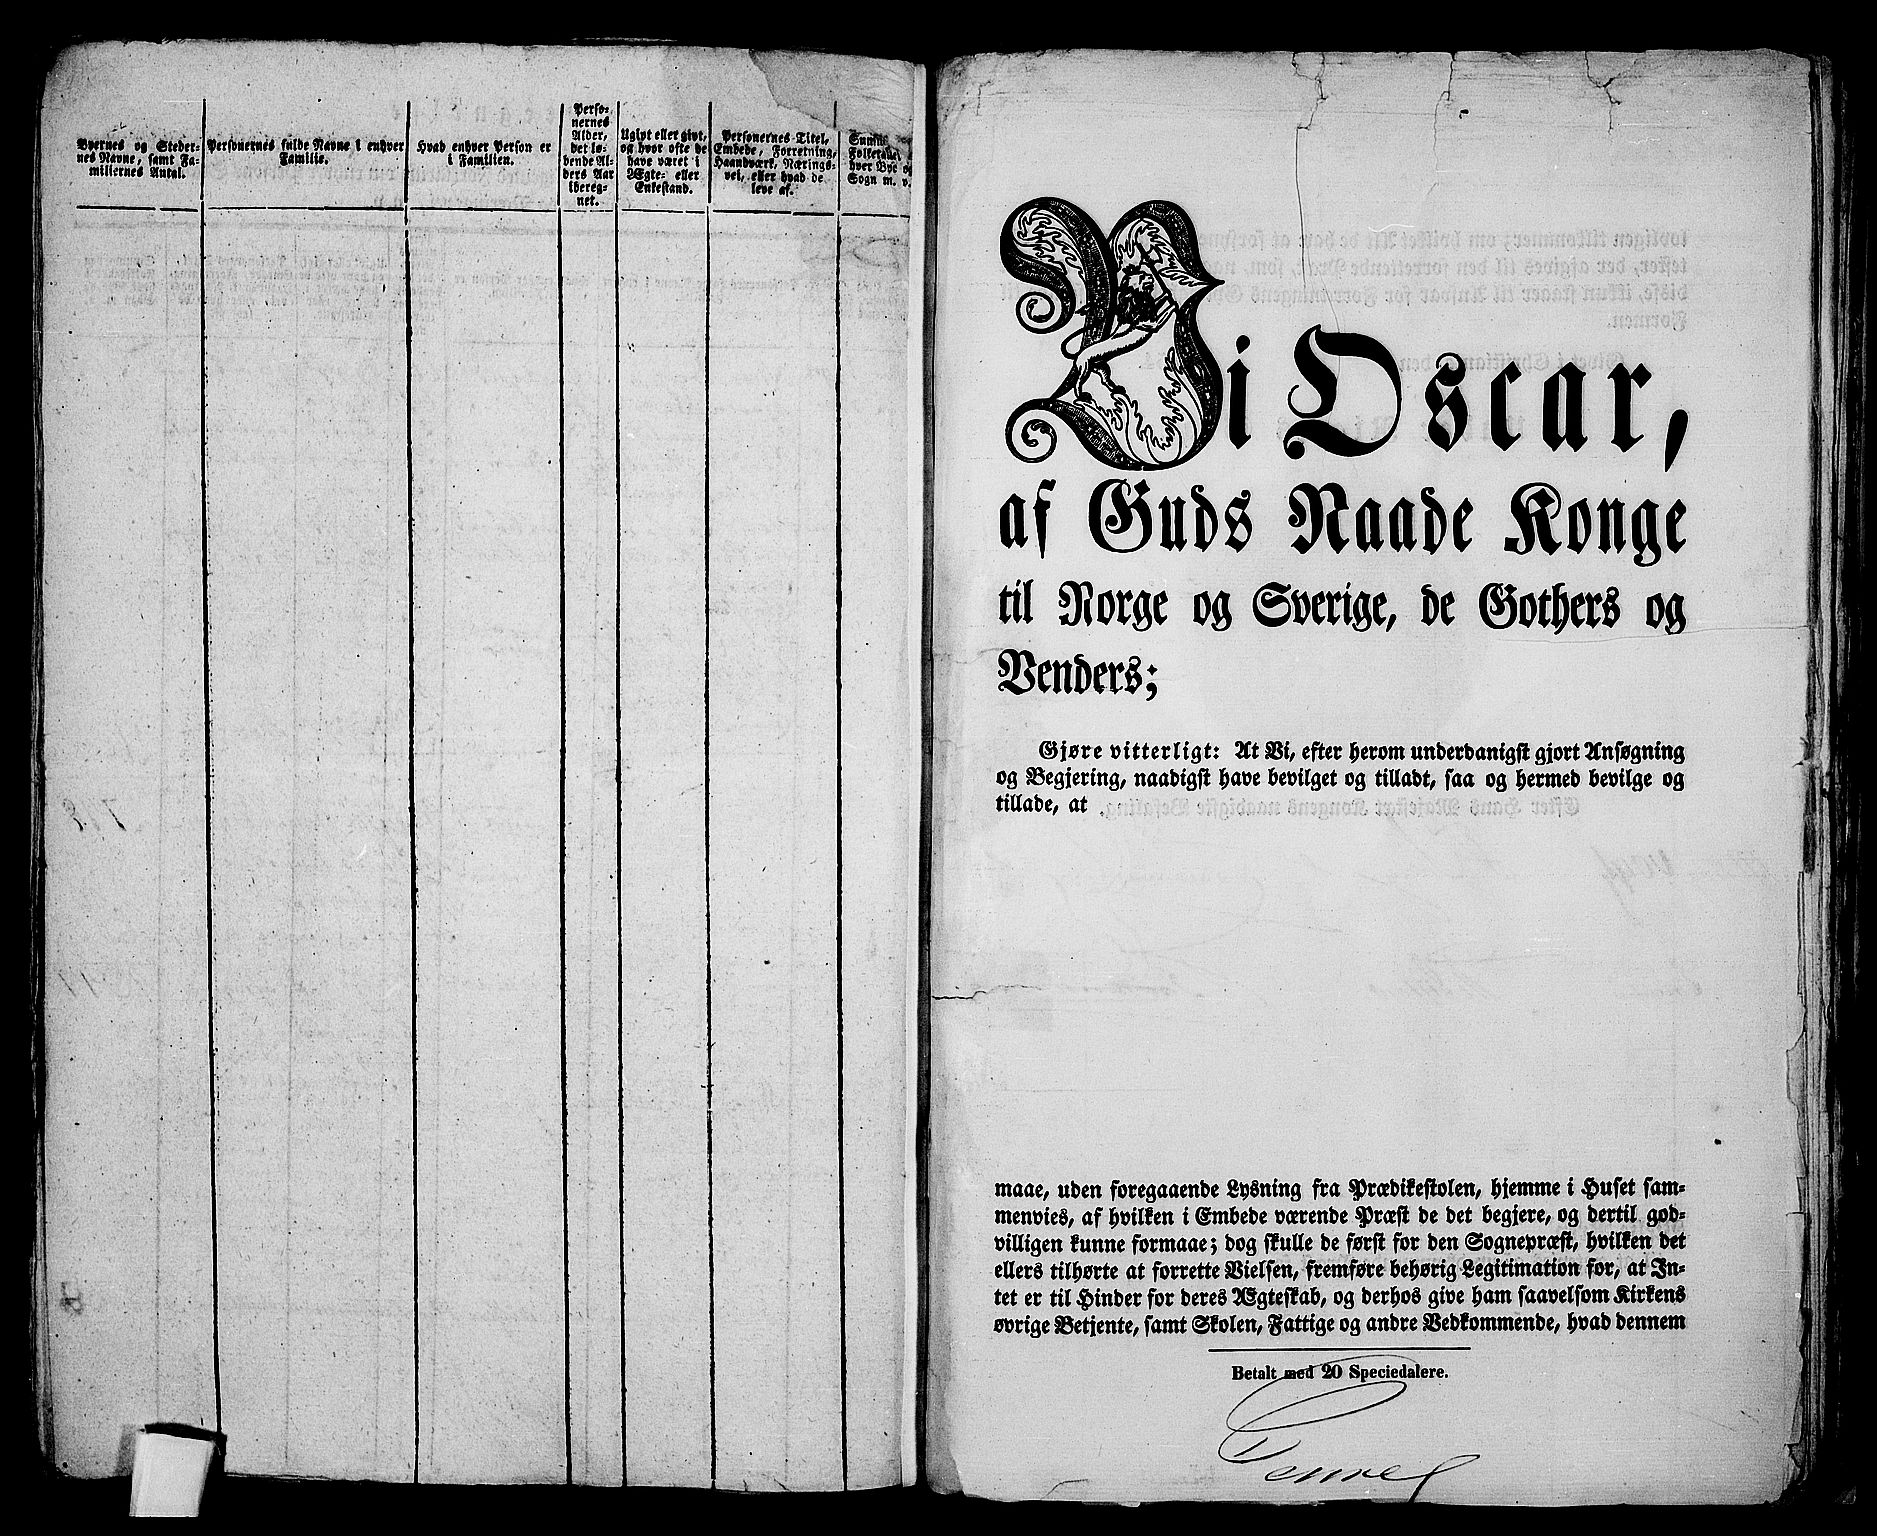 Byernes og Steder-
nes Navne, samt Fa-
miliernes Antal.
Personernes fulde Navne i enhver
Familie.
Hvad enhver Person er
i Familien.
Perso-
nernes
Alder,
det lø-
bende Al-
ders Aar
ibereg-
net.
Ugivt eller givt,
og hvor ofte de
have været i
Ægte- eller
Enkestand.
Personernes Titel,
Embede, Forretning,
Haandværk, Nærings-
vei, eller hvad de
leve af.
Summa
Folketallet
hver Bye
Sogn m. v.
Vi Oscar,
af Guds Naade Konge
til Norge og Sverige, de Gothers og
Venders;
Gjøre vitterligt: At Vi, efter herom underdanigst gjort Ansøgning
og Begjering, naadigst have bevilget og tilladt, saa og hermed bevilge og
tillade, at
maae, uden foregaaende Lysning fra Prædikestolen, hjemme i Huset sam-
menvies, af hvilken i Embede værende Præst de det begjere, og dertil god-
villigen kunne formaae; dog skulle de først for den Sognepræst, hvilken det
ellers tilhørte at forrette Vielsen, fremføre behørig Legitimation for, at In-
tet er til Hinder for deres Ægteskab, og derhos give ham saavelsom Kirkens
øvrige Betjente, samt Skolen, Fattige og andre Vedkommende, hvad dennem
Betalt med 20 Speciedalere.